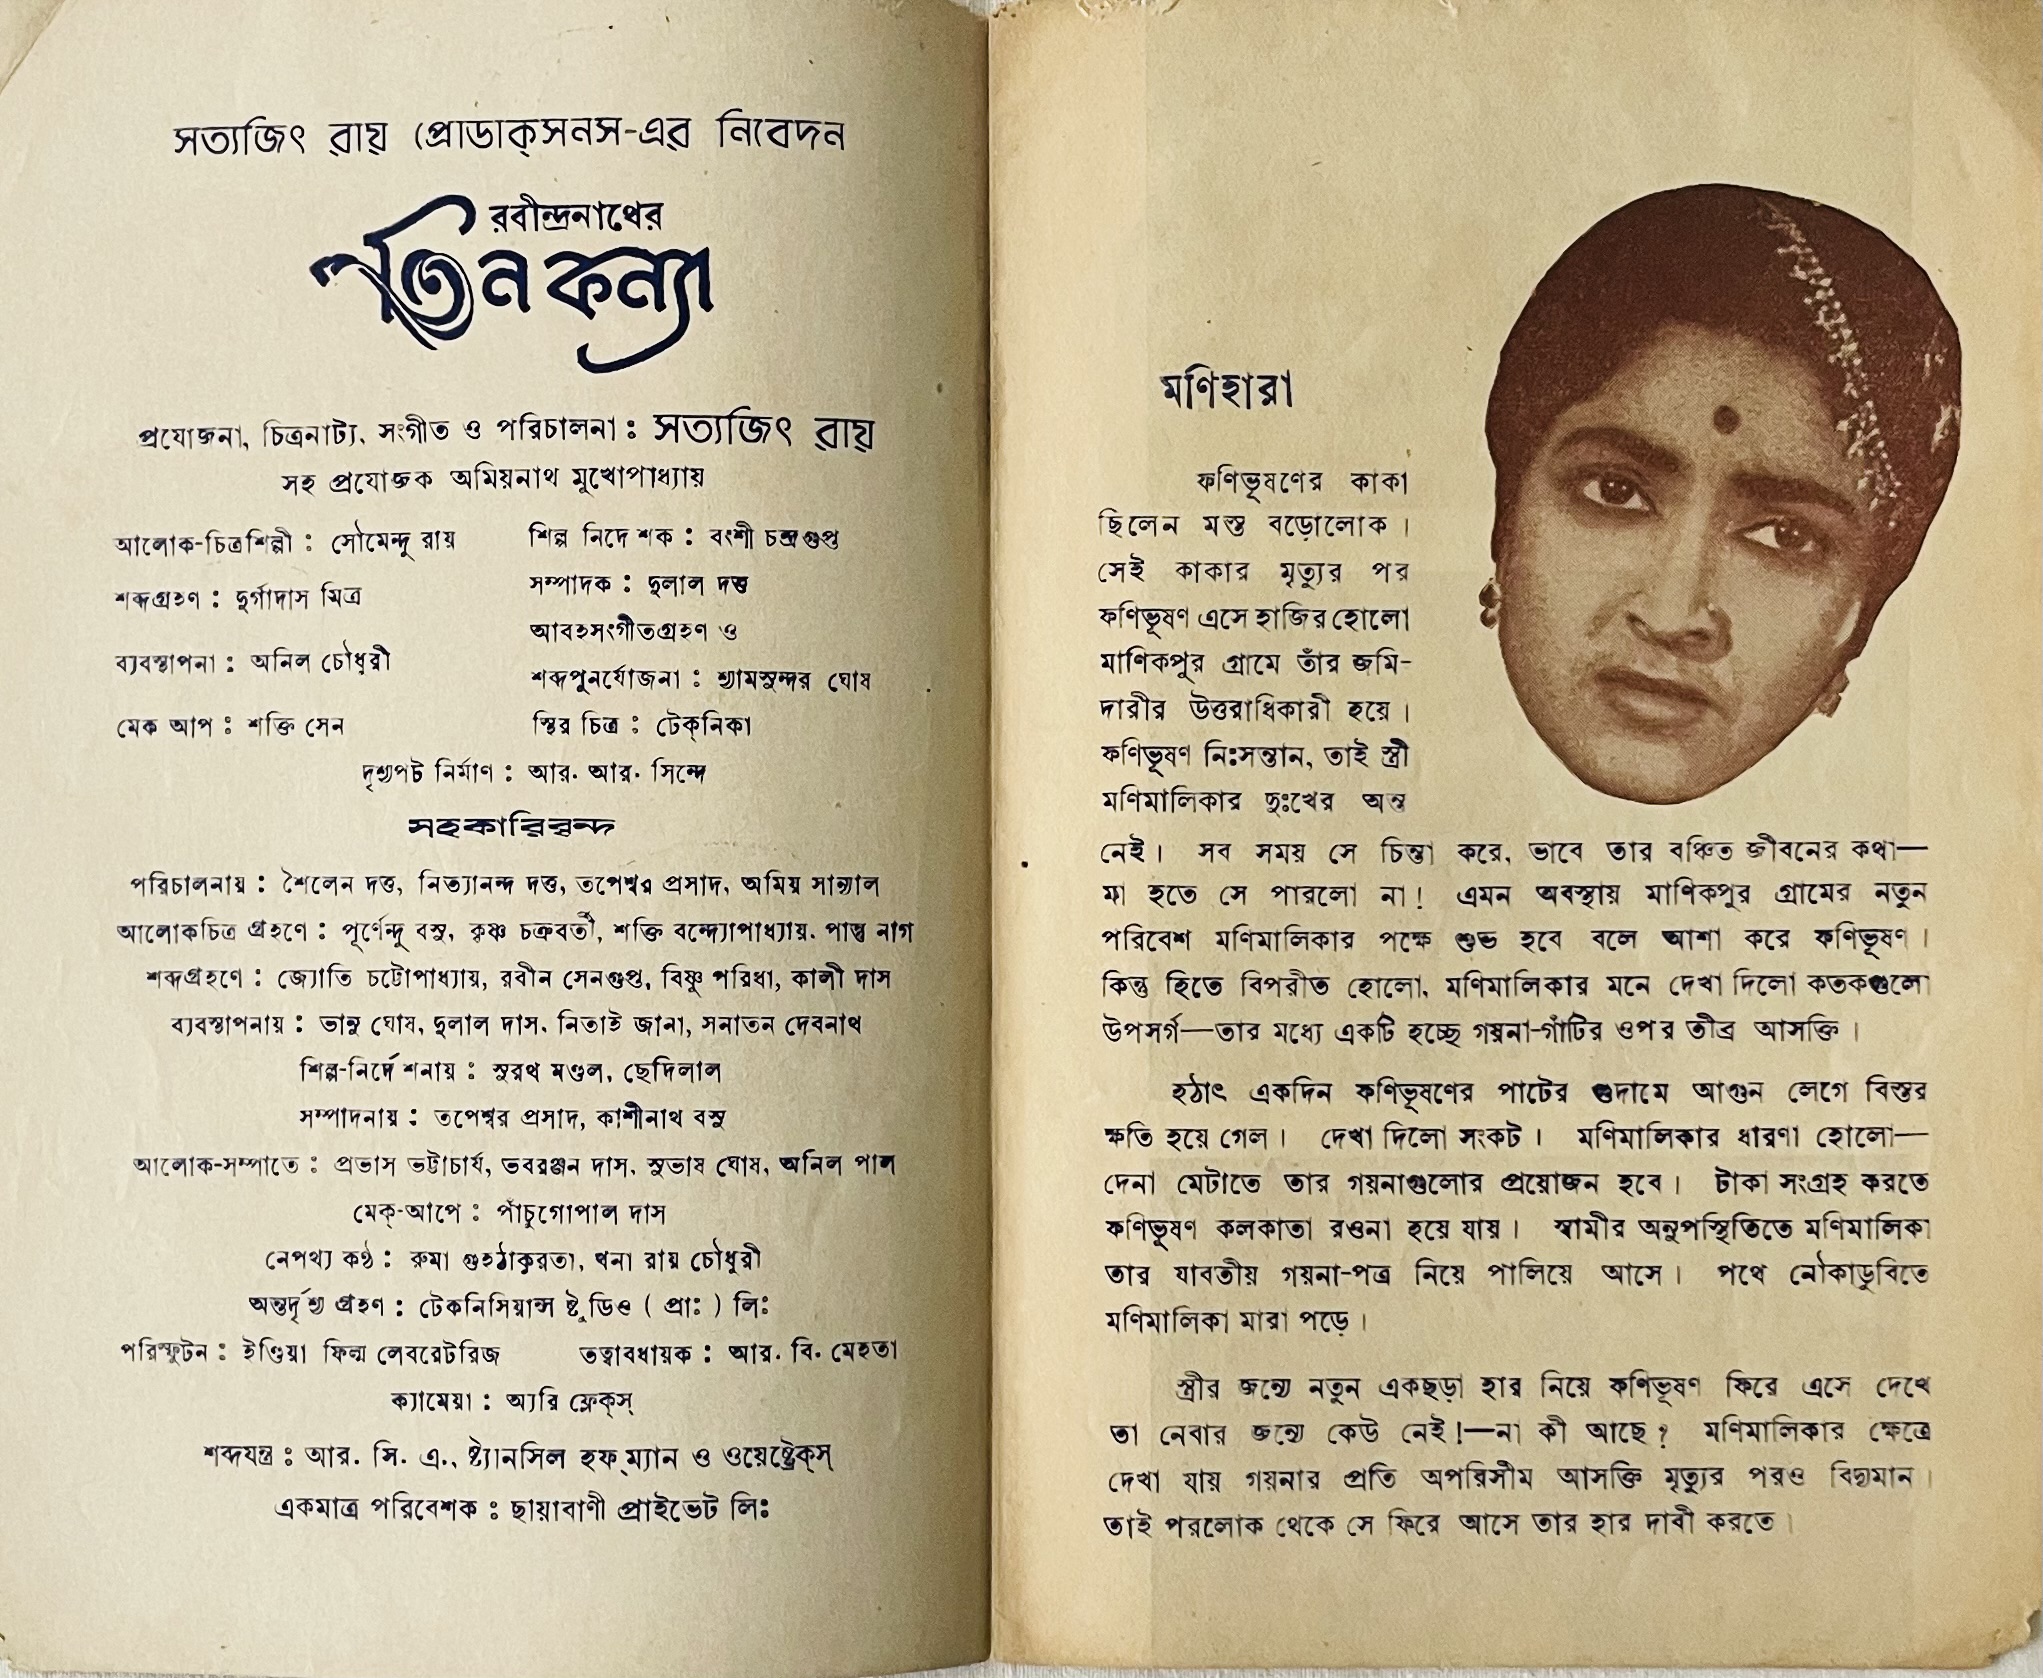 সত্যজিৎ রায় প্রোডাক্‌সনস-এর নিবেদন
রবীন্দ্রনাথের
তিন কন্যা
প্রযোজনা, চিত্রনাট্য, সংগীত ও পরিচালনা : সত্যজিৎ রায়
সহ প্রযোজক অমিয়নাথ মুখোপাধ্যায়
আলোক-চিত্রশিল্পী : সৌমেন্দু রায়
শব্দগ্রহণ : দুর্গাদাস মিত্র
ব্যবস্থাপনা : অনিল চৌধুরী
মেক আপ : শক্তি সেন
শিল্প নির্দেশক : বংশী চন্দ্রগুপ্ত
সম্পাদক : দুলাল দত্ত
আবহসংগীতগ্রহণ ও
শব্দপুনর্যোজনা : শ্যামসুন্দর ঘোষ
স্থির চিত্র : টেক্‌নিকা
দৃশ্যপট নির্মাণ : আর. আর. সিন্দে
সহকারিবৃন্দ
পরিচালনায় : শৈলেন দত্ত, নিত্যানন্দ দত্ত, তপেশ্বর প্রসাদ, অমিয় সান্যাল
আলোকচিত্র গ্রহণে : পূর্ণেন্দু বসু, কৃষ্ণ চক্রবর্তী, শক্তি বন্দ্যোপাধ্যায়. পান্তু নাগ
শব্দগ্রহণে : জ্যোতি চট্টোপাধ্যায়, রবীন সেনগুপ্ত, বিষ্ণু পরিধা, কালী দাস
ব্যবস্থাপনায় : ভানু ঘোষ, দুলাল দাস. নিতাই জানা, সনাতন দেবনাথ
শিল্প-নির্দেশনায় : সুরথ মণ্ডল, ছেদিলাল
সম্পাদনায় : তপেশ্বর প্রসাদ, কাশীনাথ বসু
আলোক-সম্পাতে : প্রভাস ভট্টাচার্য, ভবরঞ্জন দাস. সুভাষ ঘোষ, অনিল পাল
মেক্-আপে : পাঁচুগোপাল দাস
নেপথ্য কণ্ঠ : রুমা গুহঠাকুরতা, ধনা রায় চৌধুরী
অন্তর্দৃশ্য গ্রহণ : টেকনিসিয়ান্স ষ্টুডিও ( প্রাঃ ) লিঃ
পরিস্ফুটন : ইণ্ডিয়া ফিল্ম লেবরেটরিজ তত্বাবধায়ক : আর. বি. মেহতা
ক্যামেয়া : অ্যরি ফ্লেক্‌স্
শব্দযন্ত্র : আর. সি. এ., ষ্ট্যানসিল হফ্‌ম্যান ও ওয়েষ্ট্রেক্‌স্
একমাত্র পরিবেশক : ছায়াবাণী প্রাইভেট লিঃ
মণিহারা
ফণিভূষণের কাকা
ছিলেন মস্ত বড়োলোক ।
সেই কাকার মৃত্যুর পর
ফণিভূষণ এসে হাজির হোলো
মাণিকপুর গ্রামে তাঁর জমি-
দারীর উত্তরাধিকারী হয়ে ।
ফণিভূষণ নিঃসন্তান, তাই স্ত্রী
মণিমালিকার দুঃখের অন্ত
নেই । সব সময় সে চিন্তা করে, ভাবে তার বঞ্চিত জীবনের কথা—
মা হতে সে পারলো না ! এমন অবস্থায় মাণিকপুর গ্রামের নতুন
পরিবেশ মণিমালিকার পক্ষে শুভ হবে বলে আশা করে ফণিভূষণ ।
কিন্তু হিতে বিপরীত হোলো, মণিমালিকার মনে দেখা দিলো কতকগুলো
উপসর্গ—তার মধ্যে একটি হচ্ছে গয়না-গাঁটির ওপর তীব্র আসক্তি ।
হঠাৎ একদিন ফণিভূষণের পাটের গুদামে আগুন লেগে বিস্তর
ক্ষতি হয়ে গেল । দেখা দিলো সংকট । মণিমালিকার ধারণা হোলো—
দেনা মেটাতে তার গয়নাগুলোর প্রয়োজন হবে । টাকা সংগ্রহ করতে
ফণিভূষণ কলকাতা রওনা হয়ে যায় । স্বামীর অনুপস্থিতিতে মণিমালিকা
তার যাবতীয় গয়না-পত্র নিয়ে পালিয়ে আসে । পথে নৌকাডুবিতে
মণিমালিকা মারা পড়ে ।
স্ত্রীর জন্যে নতুন একছড়া হার নিয়ে ফণিভূষণ ফিরে এসে দেখে
তা নেবার জন্যে কেউ নেই !—না কী আছে ? মণিমালিকার ক্ষেত্রে
দেখা যায় গয়নার প্রতি অপরিসীম আসক্তি মৃত্যুর পরও বিদ্যমান ।
তাই পরলোক থেকে সে ফিরে আসে তার হার দাবী করতে ।